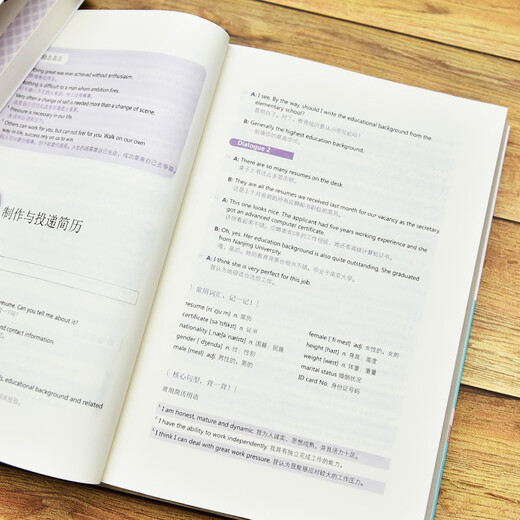 thing great was ever achieved without enthusiasm.
Nothing is difficult to a man whom ambition fires.
Very often a change of self is needed more than a change of scene.
Pressure is necessary in our life.
Others can work for you, but can not feel for you. Walk on our own
way in life, success is
制作与投递简历
resume. Can you tell me about it?
and contact information.
educational background and related
A: I see. By the way, should I write the educational background from the
elementary school?
B: Generally the highest education background.
一般填你的最高学历。
Dialogue 2
A: There are so many resumes on the desk.
桌子上有这么多简历啊。
B: They are all the resumes we received last month for our vacancy as the secretary.
A: This one looks nice. The applicant had five years working experience and she
got an advanced computer certificate.
B: Oh, yes. Her education background is also quite outstanding. She graduated
from Nanjing University.
A: I think she is very perfect for this job.
我认为她很适合这份工作。
常用词汇,记一记!
resume n. 简历
certificate n. 证书
nationality n. 国籍,民族
gender n. 性,性别
male [meɪl] adj. 男性的,男的
female adj. 女性的,女的
height [haɪt] n. 身高;高度
weight [weɪt] n. 体重;重量
marital status 婚姻状况
ID card No. 身份证号码
核心句型,背一背!
常用简历用语
1 I am honest, mature and dynamic. 我为人诚实、思想成熟、并且活力十足。
2 I have the ability to work independently. 我具有独立完成工作的能力。
3 I think I can deal with great work pressure. 我认为我能够应对较大的工作压力。